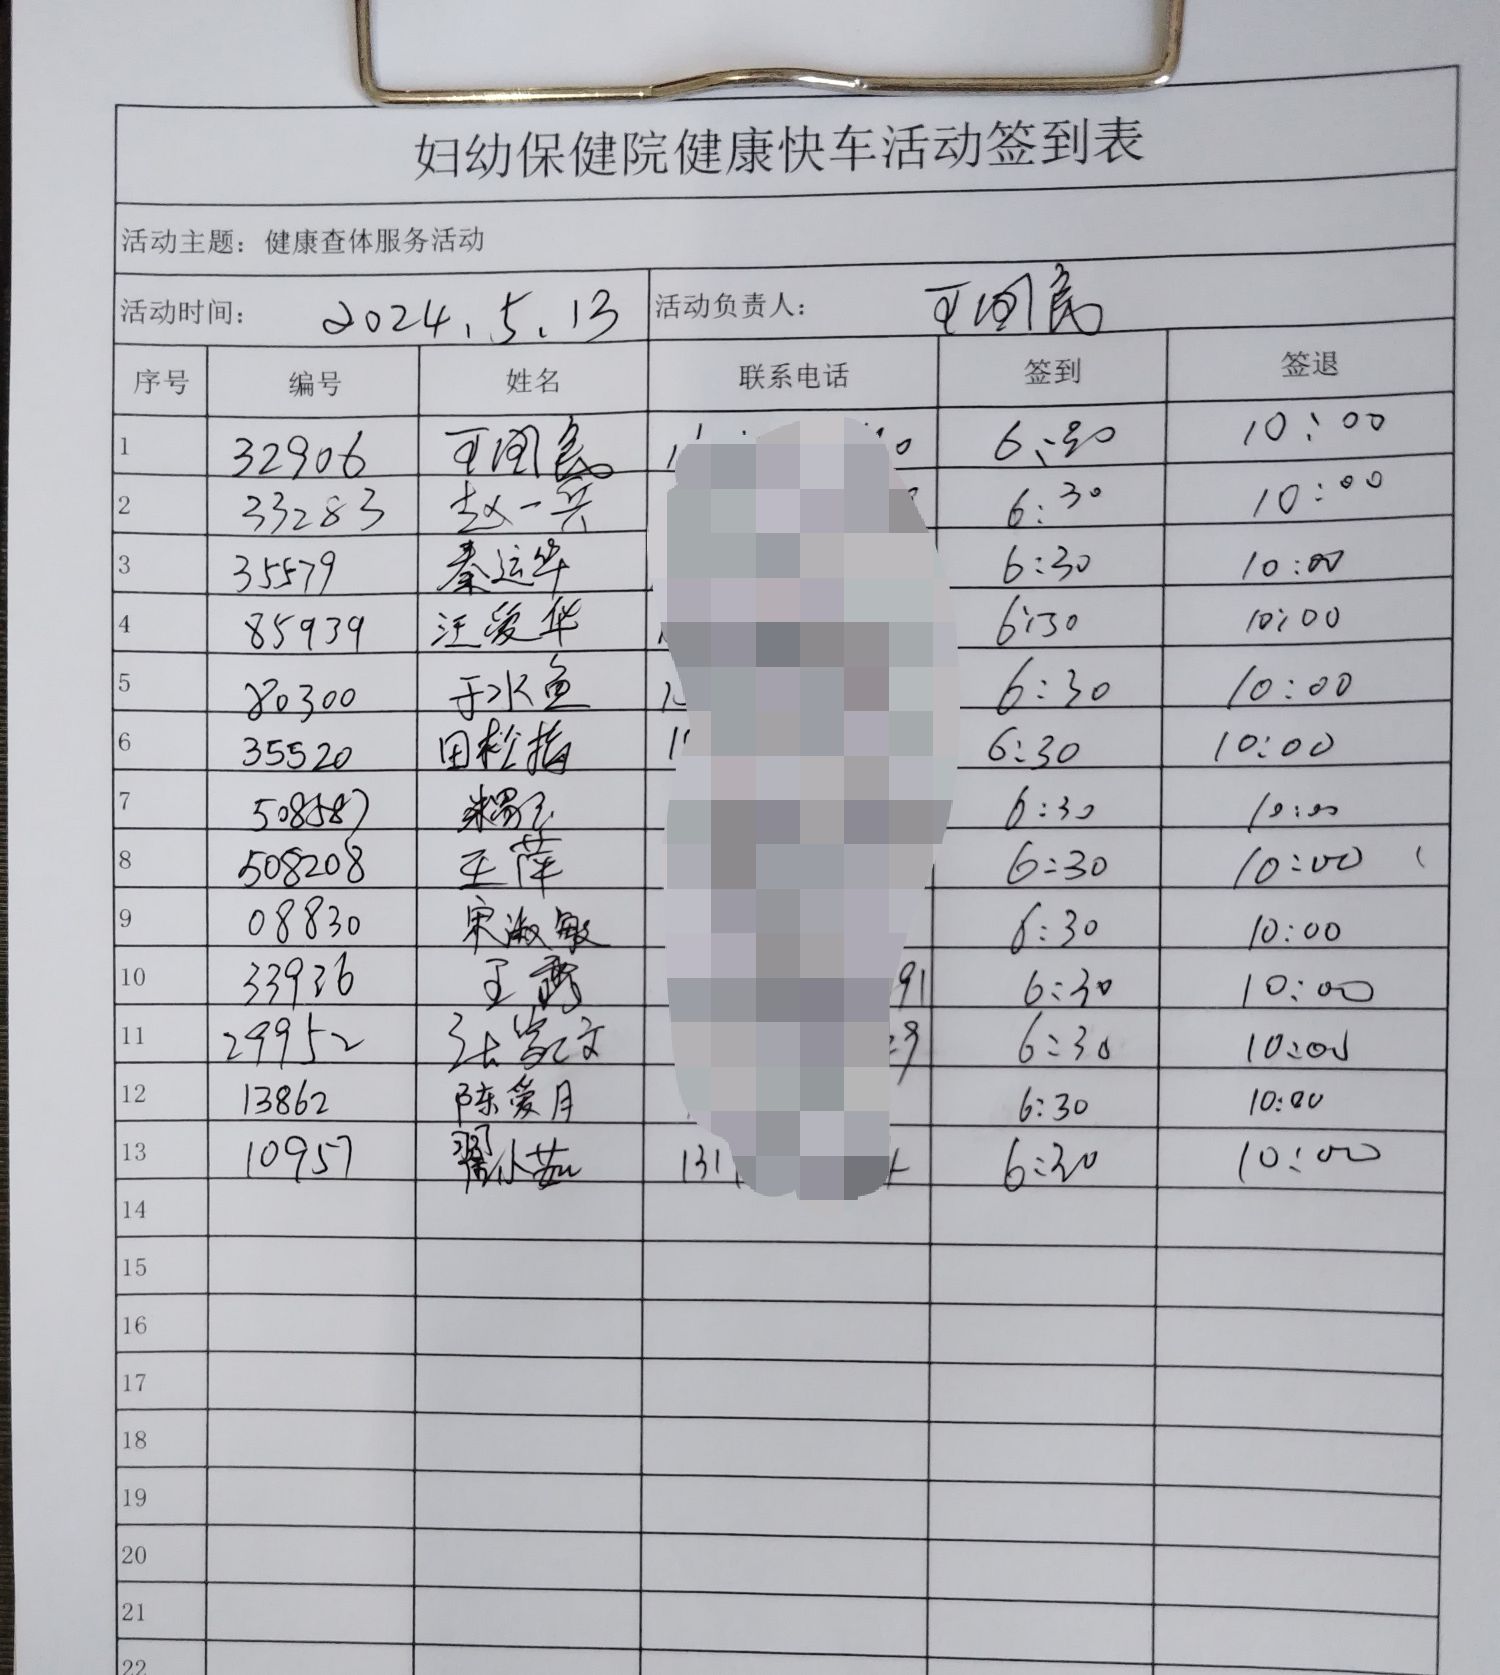 妇幼保健院健康快车活动签到表
活动主题：健康查体服务活动
活动时间： 2024.5.13 活动负责人： 王国民
序号 编号 姓名 联系电话 签到 签退
1 32906 王国民 6:30 10:00
2 33283 赵一兴 6:30 10:00
3 35579 秦运华 6:30 10:00
4 85939 汪爱华 6:30 10:00
5 80300 于水鱼 6:30 10:00
6 35520 田松梅 6:30 10:00
7 508587 6:30 10:00
8 508208 王萍 6:30 10:00
9 08830 宋淑敏 6:30 10:00
10 33936 王 91 6:30 10:00
11 29952 6:30 10:00
12 13862 陈爱月 6:30 10:00
13 10957 翟小茹 131 6:30 10:00
14
15
16
17
18
19
20
21
22